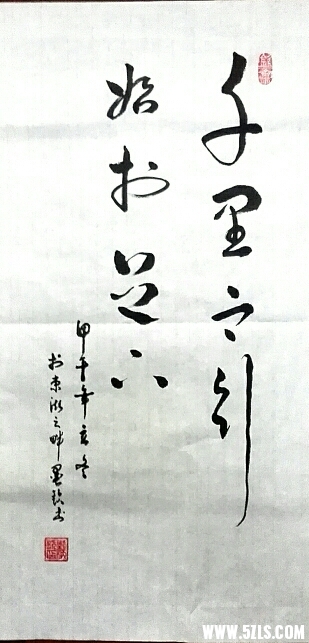 千里之行
始於足下
甲午年玄冬
於東湖之畔墨书
WWW.5ZLS.COM